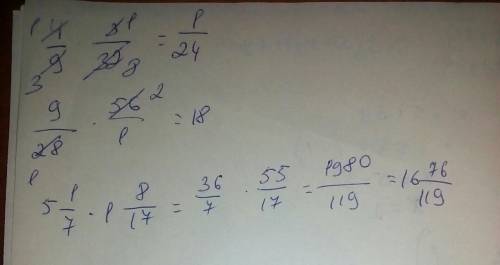 1 4/9 3 3/32 1 8 = 1/24
9/28 1 · 56/1 2 = 18
5 1/7 · 1 8/17 = 36/7 · 55/17 = 1980/119 = 16 76/119